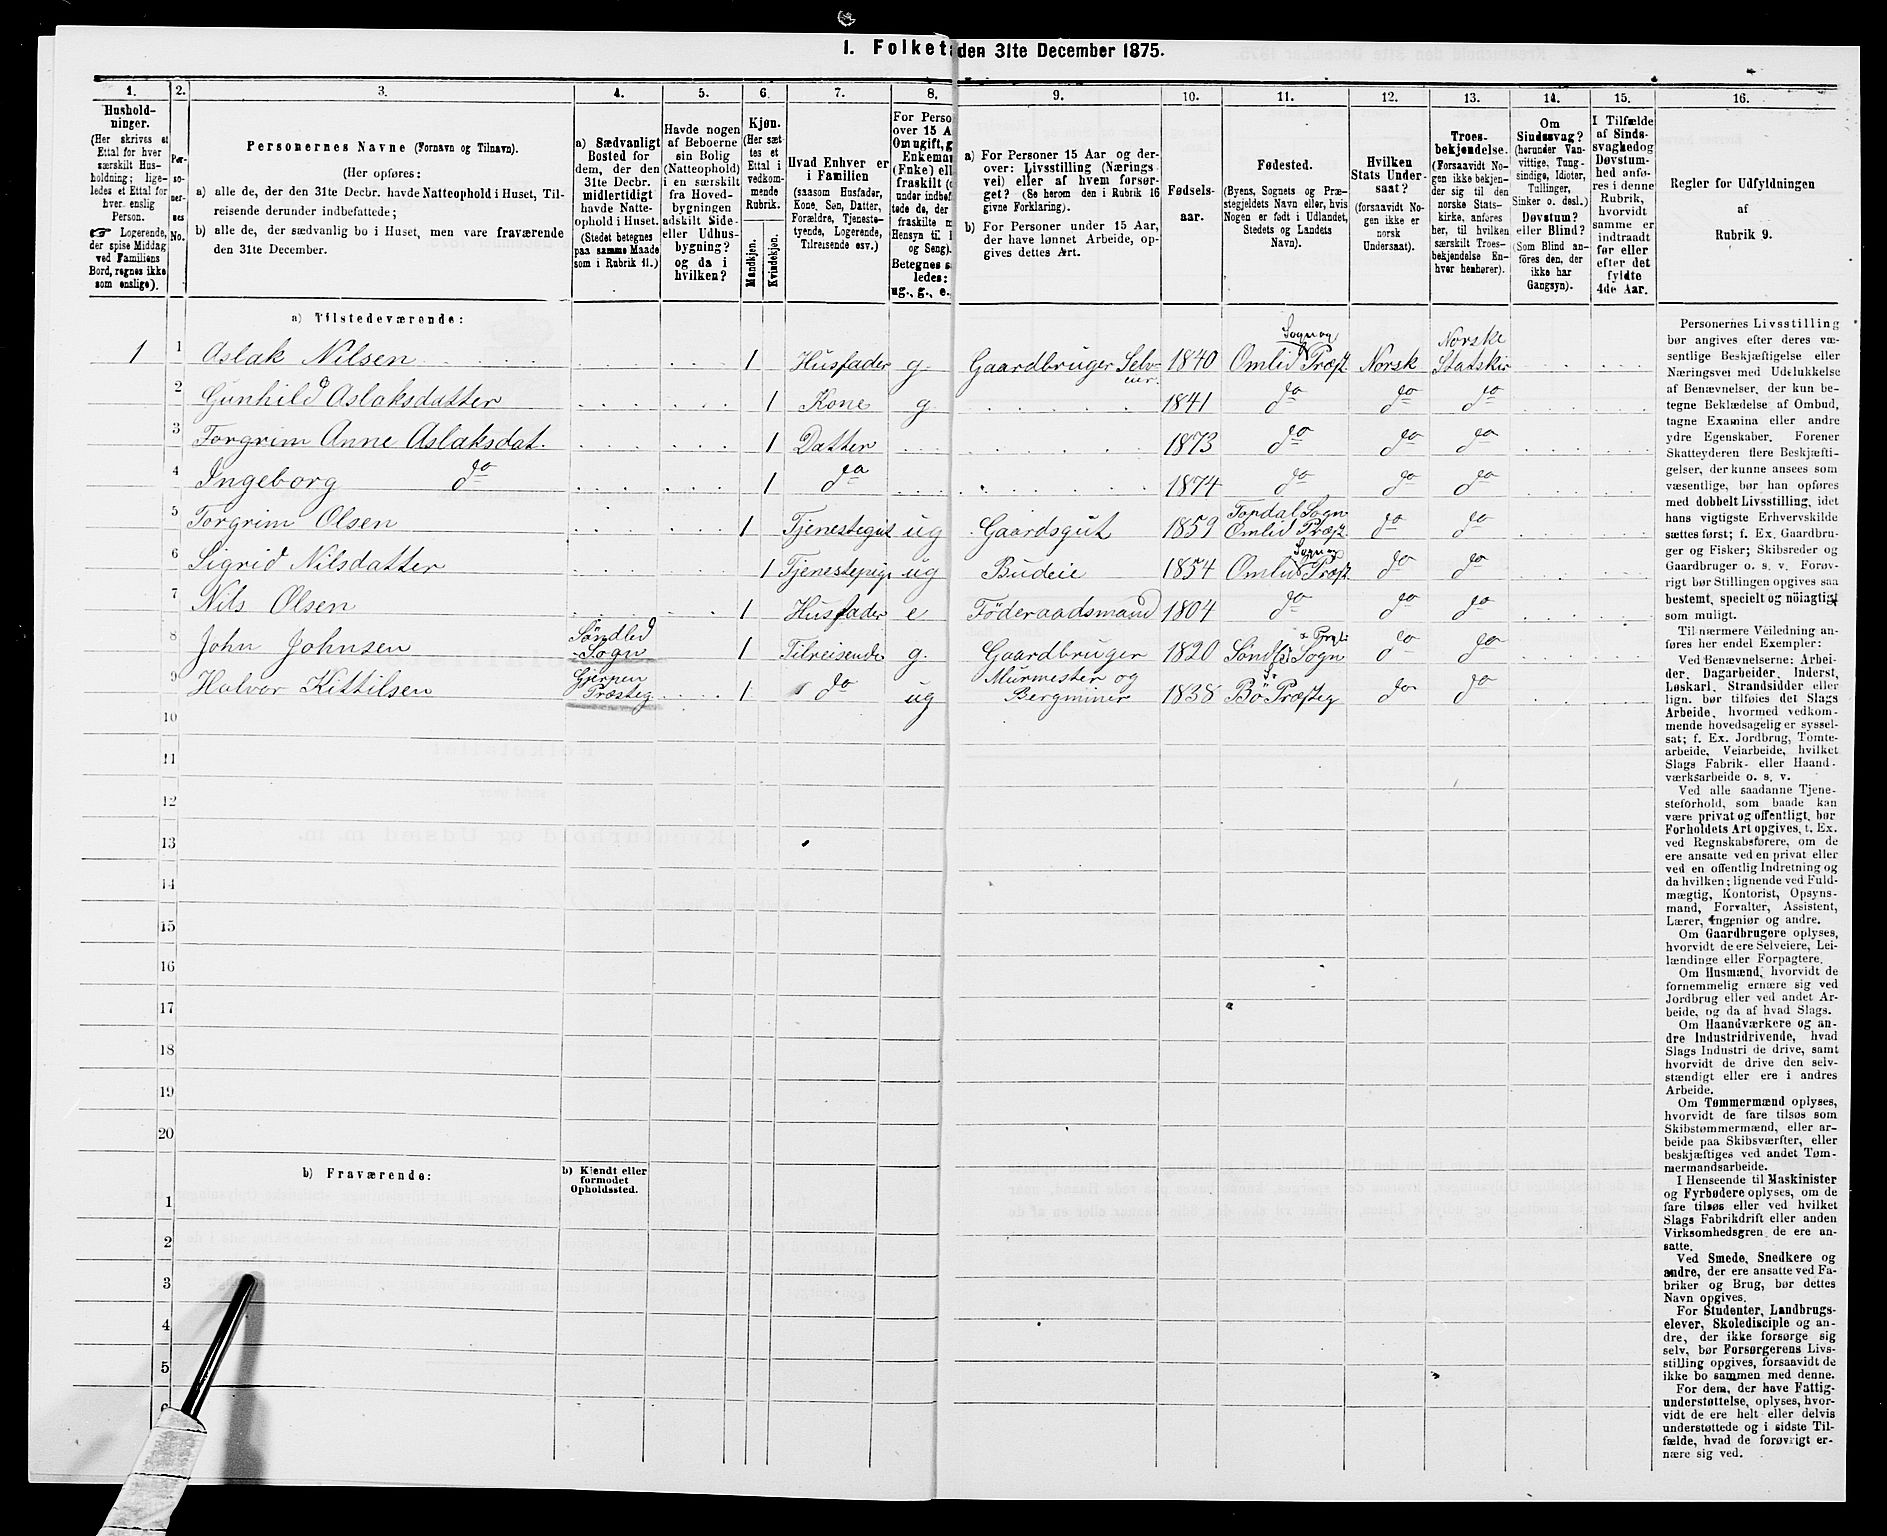 1. Folket den 31te December 1875.
1. 2. 3. 4. 5. 6. 7. 8. 9. 10. 11. 12. 13. 14. 15. 16.
Hushold-
ninger.
(Her skrives et
Ettal for hver
særskilt Hus-
holdning; lige-
ledes et Ettal for
hver enslig
Person.
Logerende,
der spise Middag
ved Familiens
Bord, regnes ikke
som enslige).
Per-
so-
ner-
nes
No.
Personernes Navne (Fornavn og Tilnavn).
(Her opføres:
a) alle de, der den 31te Decbr. havde Natteophold i Huset, Til-
reisende derunder indbefattede;
b) alle de, der sædvanlig bo i Huset, men vare fraværende
den 31te December.
a) Sædvanligt
Bosted for
dem, der den
31te Decbr.
midlertidigt
havde Natte-
ophold i Huset.
(Stedet betegnes
paa samme Maade
som i Rubrik 11.)
Havde nogen
af Beboerne
sin Bolig
(Natteophold)
i en særskilt
fra Hoved-
bygningen
adskilt Side-
eller Udhus-
bygning?
og da i
hvilken?
Kjøn.
(Her sæt-
tes et
Ettal i
vedkom-
mende
Rubrik.
Mandkjøn.
Kvindekjøn.
Hvad Enhver er
i Familien
(saasom Husfader,
Kone, Søn, Datter,
Forældre, Tjeneste-
tyende, Logerende,
Tilreisende osv.)
For Perso
over 15 A
Om ugift, g
Enkema
(Enke) elle
fraskilt (
under indbef
tede de, der
fraskilte m
Hensyn til
og Seng).
Betegnes s
ledes:
ug., g., e.
a) For Personer 15 Aar og der-
over: Livsstilling (Nærings
vei) eller af hvem forsør-
get? (Se herom den i Rubrik 16
givne Forklaring).
b) For Personer under 15 Aar,
der have lønnet Arbeide, op-
gives dettes Art.
Fødsels-
aar.
Fødested.
(Byens, Sognets og Præ-
stegjeldets Navn eller, hvis
Nogen er født i Udlandet,
Stedets og Landets
Navn).
Hvilken
Stats Under-
saat?
(forsaavidt No-
gen ikke er
norsk
Undersaat).
Troes-
bekjendelse.
(Forsaavidt No-
gen ikke bekjen-
der sig til den
norske Stats-
kirke, anføres
her, til hvilken
særskilt Troes-
bekjendelse En-
hver henhører).
Om
Sindssvag?
(herunder Van-
vittige, Tung-
sindige, Idioter,
Tullinger,
Sinker o. desl.)
Døvstum?
eller Blind?
(Som Blind an-
føres den, der
ikke har
Gangsyn).
I Tilfælde
af Sinds-
svaghed og
Døvstum-
hed anfø-
res i denne
Rubrik,
hvorvidt
samme er
indtraadt
før eller
efter det
fyldte
4de Aar.
Regler for Udfyldningen
af
Rubrik 9.
a) Tilstedeværende:
1 1 Aslak Nilsen 1 Husfader g. Gaardbruger Selv-eier. 1840 Omlid Sogn og Præst. Norsk Norske Statskir
2 Gunhild Aslaksdatter 1 Kone g 1841 do do do
3 Torgrim Anne Aslaksdat. 1 Datter 1873 do do do
4 Ingeborg do 1 do 1874 do do do
5 Torgrim Olsen 1 Tjenestegut ug Gaardsgut 1859 Topdal Sogn Omlid Præst. do do
6 Sigrid Nilsdatter 1 Tjenestepige ug Budeie 1854 Omlid Sogn og Præst. do do
7 Nils Olsen 1 Husfader e Föderaadsmand 1804 do do do
8 John Johnsen Söndled Sogn 1 Tilreisende g. Gaardbruger 1820 Sogn do do
9 Halvor Kittilsen Gjerpen Præsteg 1 do ug Murmester og Bergminer 1838 Bö Præsteg do do
10
11
12
13
14
15
16
17
18
19
20
b) Fraværende:
b) Kjendt eller
formodet
Opholdssted.
1
2
3
4
5
6
Personernes Livsstilling
bør angives efter deres væ-
sentlige Beskjæftigelse eller
Næringsvei med Udelukkelse
af Benævnelser, der kun be-
tegne Beklædelse af Ombud,
tagne Examina eller andre
ydre Egenskaber. Forener
Skatteyderen flere Beskjæfti-
gelser, der kunne ansees som
væsentlige, bør han opføres
med dobbelt Livsstilling, idet
hans vigtigste Erhvervskilde
sættes først; f. Ex. Gaardbru-
ger og Fisker; Skibsreder og
Gaardbruger o. s. v. Forøv-
rigt bør Stillingen opgives saa
bestemt, specielt og nöiagtigt
som muligt.
Til nærmere Veiledning an-
føres her endel Exempler:
Ved Benævnelserne: Arbei-
der, Dagarbeider, Inderst,
Løskarl, Strandsidder eller
lign. bør tilføies det Slags
Arbeide, hvormed vedkom-
mende hovedsagelig er syssel-
sat; f. Ex. Jordbrug, Tomte-
arbeide, Veiarbeide, hvilket
Slags Fabrik- eller Haand-
værksarbeide o. s. v.
Ved alle saadanne Tjene-
steforhold, som baade kan
være privat og offentligt, bør
Forholdets Art opgives, t. Ex.
ved Regnskabsførere, om de
ere ansatte ved en privat eller
ved en offentlig Indretning og
da hvilken; lignende ved Fuld-
mægtig, Kontorist, Opsyns-
mand, Forvalter, Assistent,
Lærer, Ingeniør og andre.
Om Gaardbrugere oplyses,
hvorvidt de ere Selveiere, Lei-
lændinge eller Forpagtere.
Om Husmænd, hvorvidt de
fornemmelig ernære sig ved
Jordbrug eller ved andet Ar-
beide, og da af hvad Slags.
Om Haandværkere og an-
dre Industridrivende, hvad
Slags Industri de drive, samt
hvorvidt de drive den selv-
stændigt eller ere i andres
Arbeide.
Om Tømmermænd oplyses,
hvorvidt de fare tilsøs som
Skibstømmermænd, eller ar-
beide paa Skibsværfter, eller
beskjæftiges ved andet Tøm-
mermandsarbeide.
I Henseende til Maskinister
og Fyrbødere oplyses, om de
fare tilsøs eller ved hvilket
Slags Fabrikdrift eller anden
Virksomhedsgren de ere an-
satte.
Ved Smede, Snedkere og
andre, der ere ansatte ved Fa-
briker og Brug, bør dettes
Navn opgives.
For Studenter, Landbrugs-
elever, Skoledisciple og an-
dre, der ikke forsørge sig
selv, bør Forsørgerens Livs-
stilling opgives, forsaavidt de
ikke bo sammen med denne.
For dem, der have Fattig-
understøttelse, oplyses, hvor-
vidt de ere helt eller delvis
understøttede og i sidste Til-
fælde, hvad de forøvrigt er-
nære sig ved.